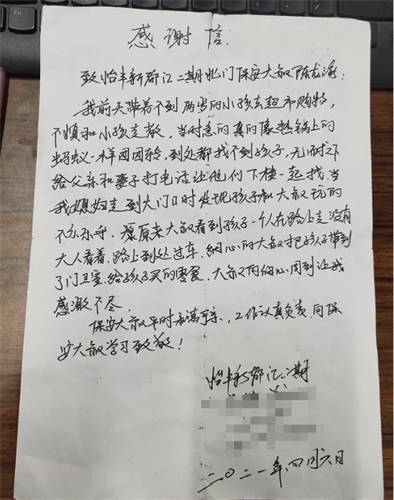 感谢信
致怡丰新都汇二期北门保安大叔陈龙海:
我前天带着不到两岁的小孩去超市购物,
不慎和小孩走散,当时急的真的像热锅上的
蚂蚁一样团团转,到处都找不到孩子,无奈
给父亲和妻子打电话让他们下楼一起找,当
我媳妇走到大门口时发现孩子和大叔玩的
不亦乐乎,原来大叔看到孩子一个人在路上走没有
大人看着,路上到处过车,细心的大叔把孩子带到
了门卫室,给孩子买的零食,大叔的细心周到让我
感激不尽.
保安大叔平时,工作认真负责,向保
安大叔学习致敬!
怡丰新都汇二期
二〇二一年.四月六日